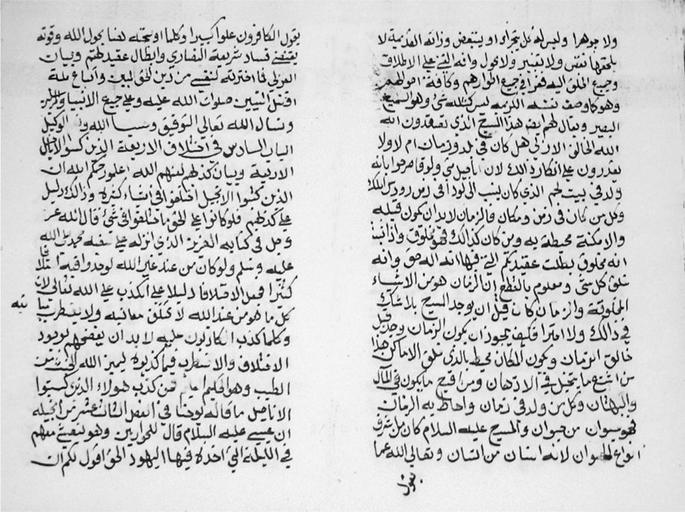 ولا جوهرا وليس له كل يتجزأ او يتبعض وذاته القديمة لا
يلحقها نقص ولا تغيير ولا تحول وانه الغني على الاطلاق
وجميع الخلق اليه فقرا في جميع احوالهم وكافة امورهم
وهو كما وصف نفسه ليس كمثله شي وهو السميع
البصير ويقال لهم بعد هذا المسيح الذي تعتقدون انه
الله الخالق الازلي هل كان في بلد وزمان ام لا ولا
يقدرون على انكار ذلك لان انجيل متى ولوقا صرحوا بانه
ولد في بيت لحم الذي كان ينسب الى لودا في زمن رودس الملك
وكل من كان في زمن ومكان فالزمان لا بد ان يكون قبله
والامكنة محيطة به ومن كان كذلك فهو مخلوق واذا ثبت
انه مخلوق بطلت عقيدتكم التي فيها انه اله حق وانه
خلق كل شي ومعلوم بالقطع ان الزمان هو من الاشياء
المخلوقة وان زمان كان قبل ان يوجد المسيح بلا شك
في ذلك ولا امترا فكيف يجوز ان يكون الزمان يوجد قبل
خالق الزمان ويكون المكان محيط بالذي خلق الاماكن هذا
من اشنع ما يتخيل في الاذهان ومن اقبح ما يكون في المحال
والبهتان وكل من ولد في زمان واحاط به الزمان
فهو حيوان من حيوان والمسيح عليه السلام كان من اشرف
انواع الحيوان لانه انسان من انسان وتعالى الله عما
يقول
يقول الكافرون علوا كبيرا وكلما اوضحته لهنا بحول الله وقوته
يقتضي فساد شريعة النصارى وابطال عقيدتهم وبيان
من دين
افضل النبيين صلوات الله عليه وعلى جميع الانبيا والمرسلين
ونسال الله تعالى التوفيق وحسبنا الله ونعم الوكيل
الباب السادس في اختلاف الاربعة الذين كتبوا الاناجيل
الاربعة وبيان كذبهم لعنهم الله اعلموا رحمكم الله ان
الذين كتبوا الانجيل اختلفوا في اشياء كثيرة وذلك دليل
على كذبهم فلو كانوا على الحق ما اختلفوا في شي قال الله عز
وجل في كتابه العزيز الذي انزله على نبيه محمد صلى الله
عليه وسلم ولو كان من عند غير الله لوجدوا فيه اختلافا
كثيرا فجعل الاختلاف دليلا على الكذب على الله تعالى لان
كل ما هو من عند الله لا تختلف معانيه ولا يضطرب
وكلما كذب الكاذبون عليه لا بد ان يفضحهم بوجود
الاختلاف والاضطراب فيما كذبوه ليميز الله الخبيث من
الطيب وهو العليم الحكيم فمن كذب هولاء الذين كتبوا
الاناجيل ما قاله يوحنا في الفصل الثالث عشر من انجيله
ان عيسى عليه السلام قال للحواريين وهو يتعشى معهم
في الليلة التي اخذه فيها اليهود الحق اقول لكم ان